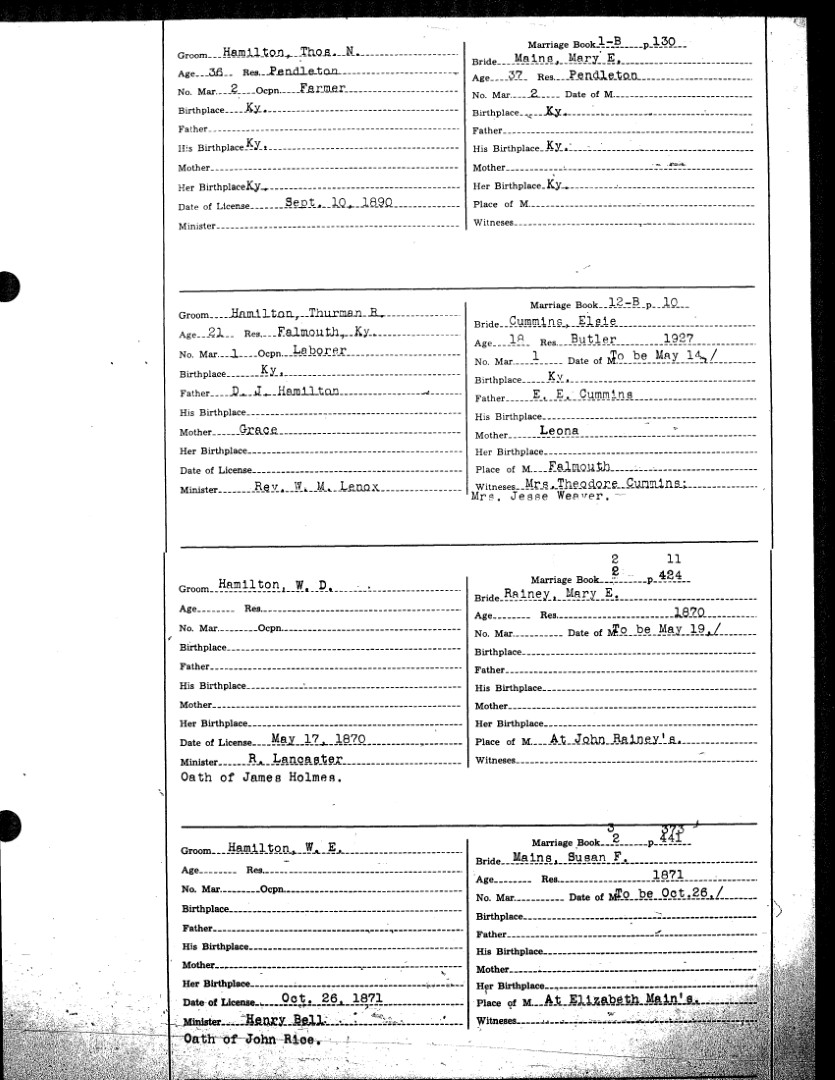 Groom Hamilton, Thos. N.
Age 36 Res. Pendleton
No. Mar. 2 Ocpn. Farmer
Birthplace Ky.
Father
His Birthplace Ky.
Mother
Her Birthplace Ky.
Date of License Sept. 10, 1890
Minister
Marriage Book 1-B p. 130
Bride Mains, Mary E.
Age 37 Res. Pendleton
No. Mar. 2 Date of M.
Birthplace Ky.
Father
His Birthplace Ky.
Mother
Her Birthplace Ky.
Place of M.
Witnesses
Groom Hamilton, Thurman R.
Age 21 Res. Falmouth, Ky.
No. Mar. 1 Ocpn. Laborer
Birthplace Ky.
Father D. J. Hamilton
His Birthplace
Mother Grace
Her Birthplace
Date of License
Minister Rev. W. M. Lenox
Marriage Book 12-B p. 10
Bride Cummins, Elsie
Age 18 Res. Butler 1927
No. Mar. 1 Date of M. To be May 14,/
Birthplace Ky.
Father E. E. Cummins
His Birthplace
Mother Leona
Her Birthplace
Place of M. Falmouth
Witnesses Mrs. Theodore Cummins;
Mrs. Jesse Weaver.
Groom Hamilton, W. D.
Age Res.
No. Mar. Ocpn.
Birthplace
Father
His Birthplace
Mother
Her Birthplace
Date of License May 17, 1870
Minister R. Lancaster
Oath of James Holmes.
2 11
Marriage Book 2 p. 424
Bride Rainey, Mary E.
Age Res. 1870
No. Mar. Date of M. To be May 19,/
Birthplace
Father
His Birthplace
Mother
Her Birthplace
Place of M. At John Rainey's.
Witnesses
Groom Hamilton, W. E.
Age Res.
No. Mar. Ocpn.
Birthplace
Father
His Birthplace
Mother
Her Birthplace
Date of License Oct. 26, 1871
Minister Henry Bell
Oath of John Rice.
3 373
Marriage Book 2 p. 441
Bride Mains, Susan F.
Age Res. 1871
No. Mar. Date of M. To be Oct.26,/
Birthplace
Father
His Birthplace
Mother
Her Birthplace
Place of M. At Elizabeth Main's.
Witnesses